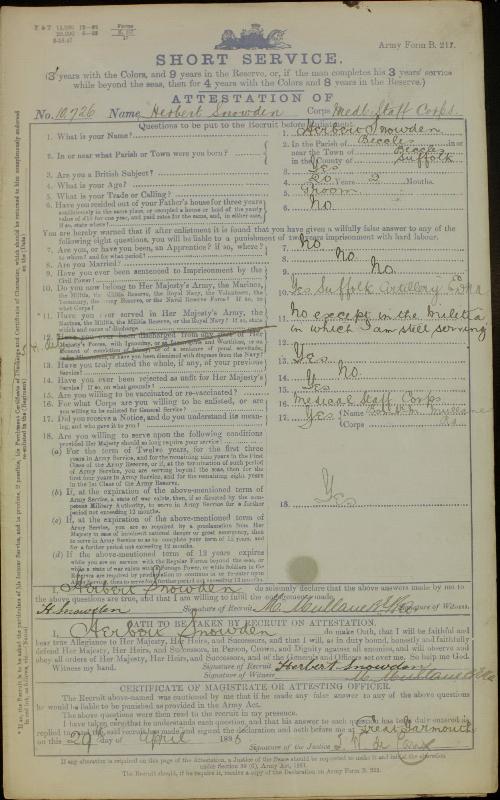 Army Form B. 217.
SHORT SERVICE.
(3 years with the Colors, and 9 years in the Reserve, or, if the man completes his 3 years' service
while beyond the seas, then for 4 years with the Colors and 8 years in the Reserve.)
ATTESTATION OF
No. 10,726 Name Herbert Snowden Corps Medl. Staff Corps.
Questions to be put to the Recruit before
1. What is your Name? 1. Herbert Snowden
2. In or near what Parish or Town were you born? 2. In the Parish of Beccles in or
near the Town of Beccles
in the County of Suffolk
3. Are you a British Subject? 3. Yes
4. What is your Age? 4. 20 Years 2 Months.
5. What is your Trade or Calling? 5. Groom
6. Have you resided out of your Father's house for three years 6. No
continuously in the same place, or occupied a house or land of the yearly
value of £10 for one year, and paid rates for the same, and, in either case,
if so, state where?
You are hereby warned that if after enlistment it is found that you have given a wilfully false answer to any of the
following eight questions, you will be liable to a punishment of two years imprisonment with hard labour.
7. Are you, or have you been, an Apprentice? If so, where? 7. No
to whom? and for what period?
8. Are you Married? 8. No.
9. Have you ever been sentenced to Imprisonment by the 9. No.
Civil Power?
10. Do you now belong to Her Majesty's Army, the Marines, 10. Yes Suffolk Artillery
the Militia, the Militia Reserve, the Royal Navy, the Volunteers, the
Yeomanry, the Army Reserve, or the Naval Reserve Force? If so, to
what Corps?
*11. Have you ever served in Her Majesty's Army, the 11. No except in the Militia
Marines, the Militia, the Militia Reserve, or the Royal Navy? If so, state in which I am still serving
which and cause of discharge
12. Have you ever been discharged from any part of Her 12.
Majesty's Forces, with Ignominy, or as Incorrigible and Worthless, or on
account of conviction of felony, or of a sentence of penal servitude,
or have you been dismissed with disgrace from the Navy?
13. Have you truly stated the whole, if any, of your previous 13. Yes
Service?
14. Have you ever been rejected as unfit for Her Majesty's 14. No.
Service? If so, on what grounds?
15. Are you willing to be vaccinated or re-vaccinated? 15. Yes
16. For what Corps are you willing to be enlisted, or are 16. Medical Staff Corps
you willing to be enlisted for General Service?
17. Did you receive a Notice, and do you understand its meaning, 17. Yes Name
and who gave it to you? Corps
18. Are you willing to serve upon the following conditions 18. Yes
provided Her Majesty should so long require your service?
(a) For the term of Twelve years, for the first three
years in Army Service, and for the remaining nine years in the First
Class of the Army Reserve, or if, at the termination of such period
of Army Service, you are serving beyond the seas, then for the
first four years in Army Service, and for the remaining eight years
in the 1st Class of the Army Reserve.
(b) If, at the expiration of the above-mentioned term of
Army Service, a state of war exists, then, if so directed by the competent
Military Authority, to serve in Army Service for a further
period not exceeding 12 months.
(c) If, at the expiration of the above-mentioned term of
Army Service, you are so required by a proclamation from Her
Majesty in case of imminent national danger or great emergency, then
to serve in Army Service so as to complete your term of 12 years, and
for a further period not exceeding 12 months.
(d) If the above-mentioned term of 12 years expires
while you are on service with the Regular Forces beyond the seas, or
while a state of war exists with a Foreign Power, or while Soldiers in the
Reserve are required by proclamation to continue in or re-enter upon
Army Service, then to serve for a further period not exceeding 12 months.
I, Herbert Snowden do solemnly declare that the above answers made by me to
the above questions are true, and that I am willing to fulfil the engagements made.
H. Snowden Signature of Recruit. Signature of Witness.
OATH TO BE TAKEN BY RECRUIT ON ATTESTATION.
I, Herbert Snowden do make Oath, that I will be faithful and
bear true Allegiance to Her Majesty, Her Heirs, and Successors, and that I will, as in duty bound, honestly and faithfully
defend Her Majesty, Her Heirs, and Successors, in Person, Crown, and Dignity against all enemies, and will observe and
obey all orders of Her Majesty, Her Heirs, and Successors, and of the Generals and Officers set over me. So help me God.
Witness my hand. Signature of Recruit Herbert Snowden
Signature of Witness
CERTIFICATE OF MAGISTRATE OR ATTESTING OFFICER.
The Recruit above-named was cautioned by me that if he made any false answer to any of the above questions
he would be liable to be punished as provided in the Army Act.
The above questions were then read to the recruit in my presence.
I have taken care that he understands each question, and that his answer to each question has been duly entered as
replied to, and the said recruit has made and signed the declaration and oath before me at Great Yarmouth
on this 29th day of April 1886
Signature of the Justice
If any alteration is required on this page of the Attestation, a Justice of the Peace should be requested to make it and initial the alteration
under Section 80 (6), Army Act, 1881.
The Recruit should, if he require it, receive a copy of the Declaration on Army Form B. 212.